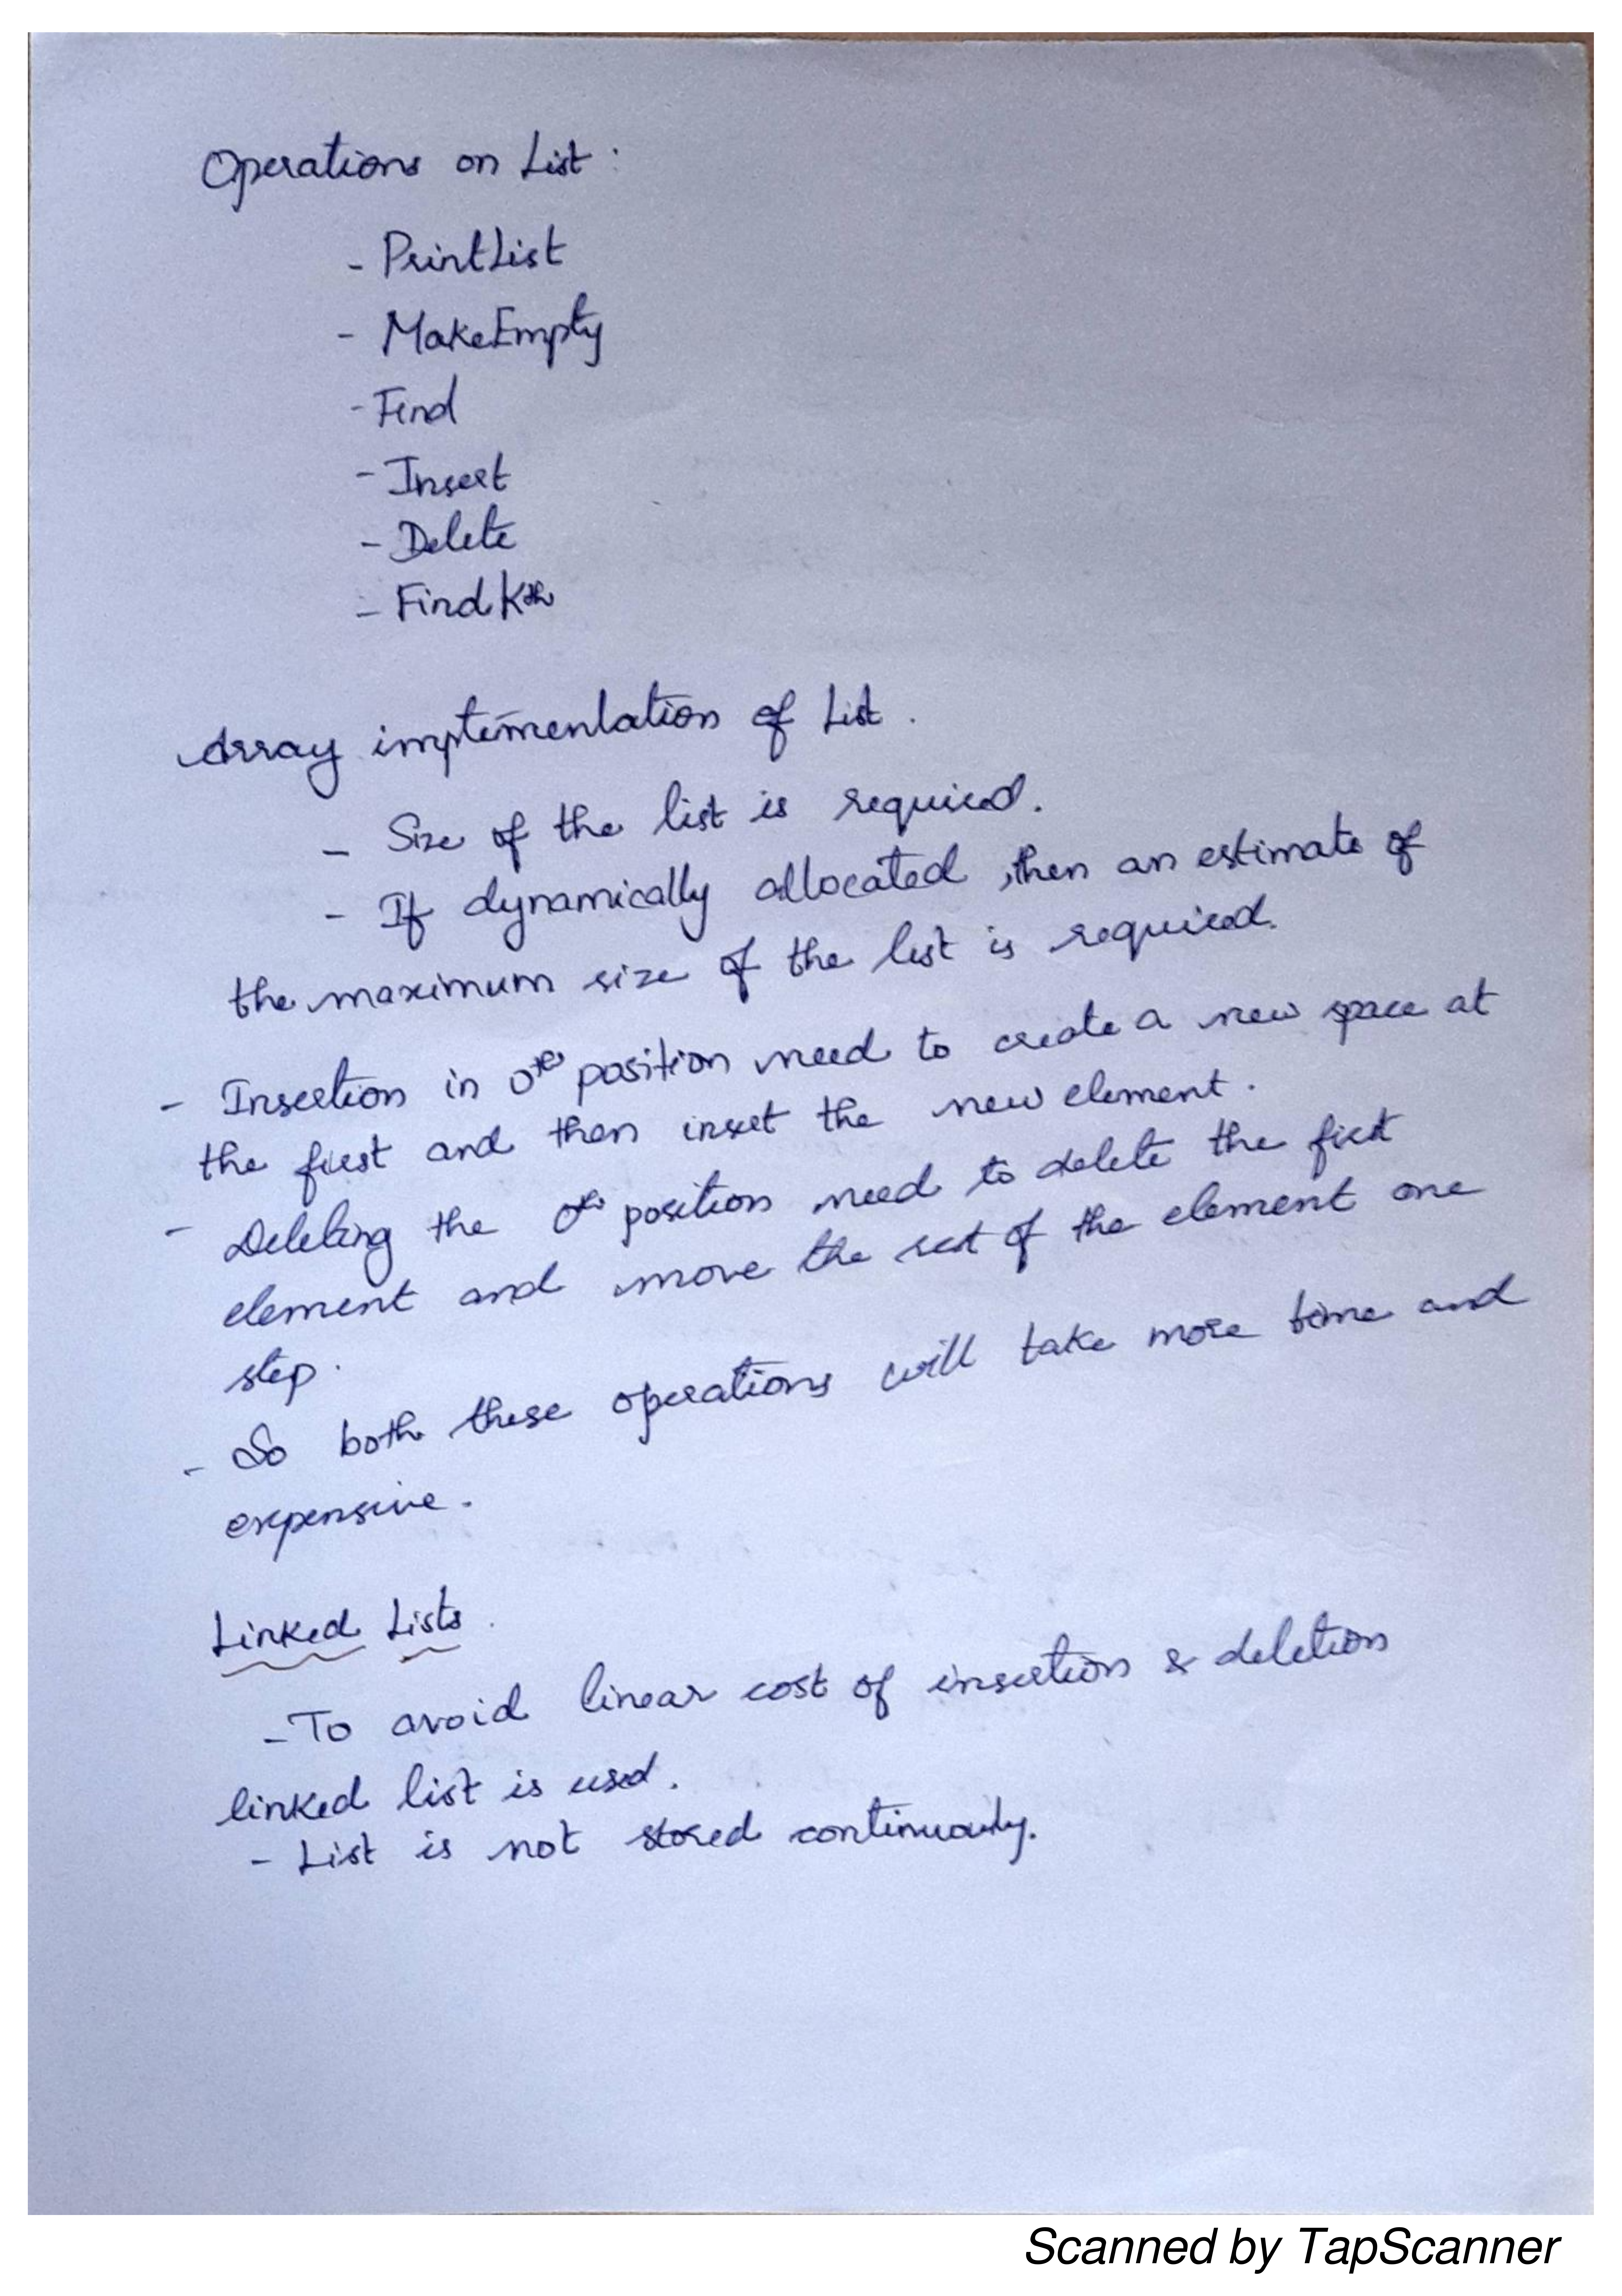 Operations on List :
- PrintList
- MakeEmpty
- Find
- Insert
- Delete
- FindKth
Array implementation of List .
- Size of the list is required.
- If dynamically allocated , then an estimate of
the maximum size of the list is required.
- Insertion in 0th position need to create a new space at
the first and then insert the new element .
- Deleting the 0th position need to delete the first
element and move the rest of the element one
step .
- So both these operations will take more time and
expensive .
Linked Lists .
- To avoid linear cost of insertion & deletion
linked list is used .
- List is not stored continuously.
Scanned by TapScanner